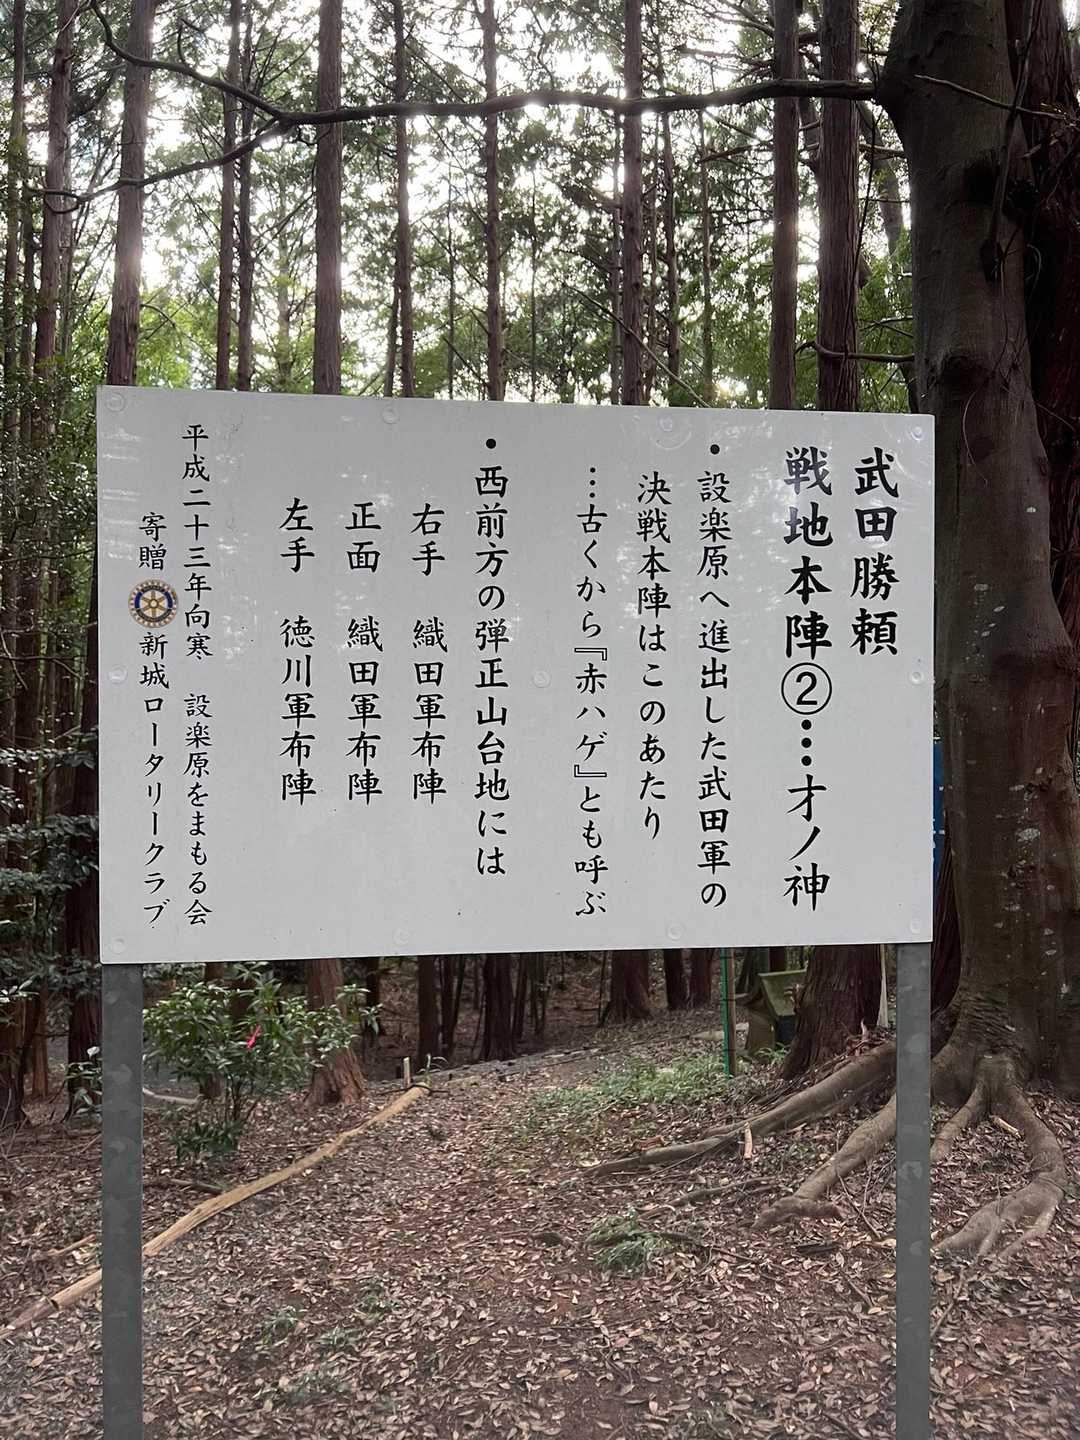 武田勝頼
戦地本陣②…才ノ神
・設楽原へ進出した武田軍の
決戦本陣はこのあたり
…古くから『赤ハゲ』とも呼ぶ
・西前方の弾正山台地には
右手 織田軍布陣
正面 織田軍布陣
左手 徳川軍布陣
平成二十三年向寒 設楽原をまもる会
寄贈 新城ロータリークラブ